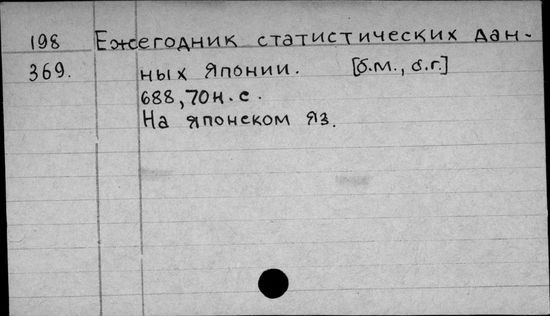 198 Ежегодник статистических дан-
369. ных Японии. [б.м., б.г.]
688, 70н. с.
На японском яз.